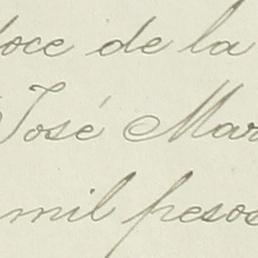 doce de la
José Mar
mil pesos